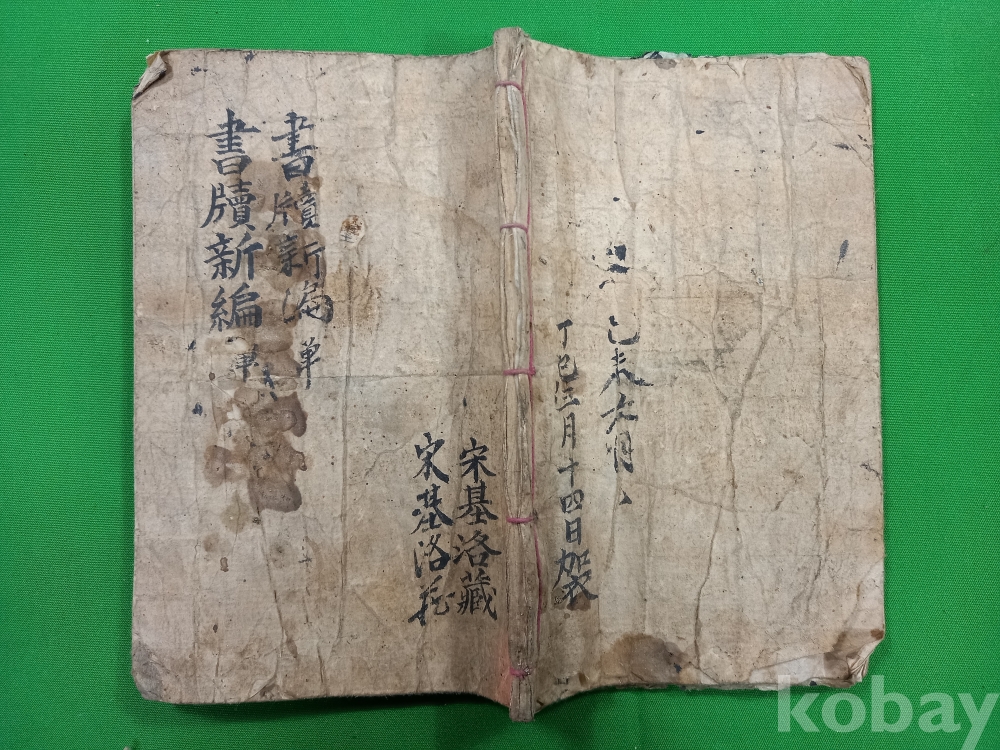 丁巳三月十四日袈
己未六月
宋基洛藏
宋基洛藏
書牘新編 单
書牘新編 单
kobay